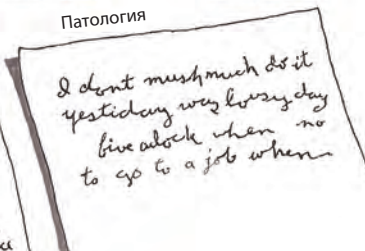 Патология
I dont mushmuch do it
yestiday way lousy day
five oclock when no
to go to a job when